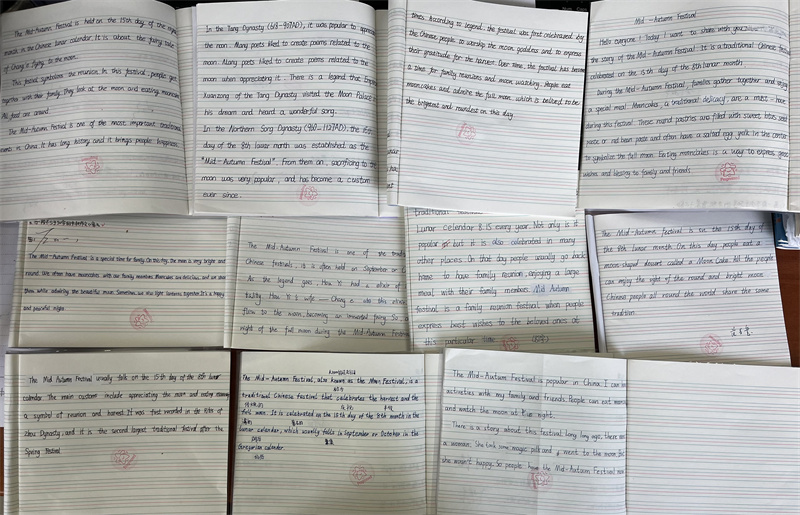 The Mid-Autumn Festival is held on the 15th day of the eighth
month in the Chinese lunar calendar. It is about the fairy tale
of Chang'e flying to the moon.
This festival symbolizes the reunion. In this festival, people get
together with their family. They look at the moon and eating mooncake
The Mid-Autumn Festival is one of the most important traditional
in China. It has long history and it brings people happiness.
In the Tang Dynasty (618-907AD), it was popular to appreciate
the moon. Many poets liked to create poems related to the
moon. Many poets like to create poems related to the
moon when appreciating it. There is a legend that Emperor
Xuanzong of the Tang Dynasty visited the Moon Palace in
his dream and heard a wonderful song.
In the Northern Song Dynasty (960-1127AD), the 15th
day of the 8th lunar month was established as the
"Mid-Autumn Festival". From then on, sacrificing to the
moon was very popular, and has become a custom
ever since.
times. According to legend, the festival was first celebrated by
the Chinese people to worship the moon goddess and to express
their gratitude for the harvest. Over time, the festival has become
a time for family reunions and moon watching. People eat
mooncakes and admire the full moon, which is believed to be
the brightest and roundest on this day.
Mid-Autumn Festival
Hello everyone! Today I want to share with you
the story of the Mid-Autumn Festival. It is a traditional Chinese festival
celebrated on the 15th day of the 8th lunar month.
During the Mid-Autumn Festival, families gather together and enjoy
a special meal. Mooncakes, a traditional delicacy, are a must-have
during this festival. These round pastries are filled with sweet lotus seed
paste or red bean paste and often have a salted egg yolk in the center
to symbolize the full moon. Eating mooncakes is a way to express good
wishes and blessing to family and friends.
The Mid-Autumn Festival is a special time for family. On this day, the moon is very bright and
round. We often have mooncakes with our family members. Mooncakes are delicious, and we share
them while admiring the beautiful moon. Sometimes, we also light lanterns together. It's a happy
and peaceful night.
The Mid-Autumn Festival is one of the traditional
Chinese festivals, is is often held on September or
As the legend goes, Hou Yi had a elixir of
Hou Yi's wife — Chang e ate this elixir
flew to the moon, becoming an immortal fairy. So
night of the full moon during the Mid-Autumn Festival
traditional
Lunar calendar 8.15 every year. Not only is it
popular but it is also celebrated in many
other places. On that day people usually go back
home to have family reunion, enjoying a large
meal with their family members. Mid Autumn
festival is a family reunion festival when people
express best wishes to the beloved ones at
this particular time.
The Mid-Autumn Festival is on the 15th day of
the 8th lunar month. On this day people eat a
moon-shaped dessert called a Moon Cake. All the people
can enjoy the sight of the round and bright moon.
Chinese people all round the world share the same
tradition.
The Mid Autumn Festival usually falls on the 15th day of the 8th lunar
calendar. The main customs include appreciating the moon and eating mooncakes
a symbol of reunion and harvest. It was first recorded in the Rites of
Zhou Dynasty, and it is the second largest traditional festival after the
Spring Festival
The Mid-Autumn Festival, also known as the Moon Festival, is a
traditional Chinese festival that celebrates the harvest and the
full moon. It is celebrated on the 15th day of the 8th month in the
lunar calendar, which usually falls in September or October in the
Gregorian calendar.
The Mid-Autumn Festival is popular in China. I can
activities with my family and friends. People can eat mooncakes
and watch the moon at the night.
There is a story about this festival. Long long ago, there was
a woman. She took some magic pills and went to the moon. But
she wasn't happy. So people have the Mid-Autumn Festival now